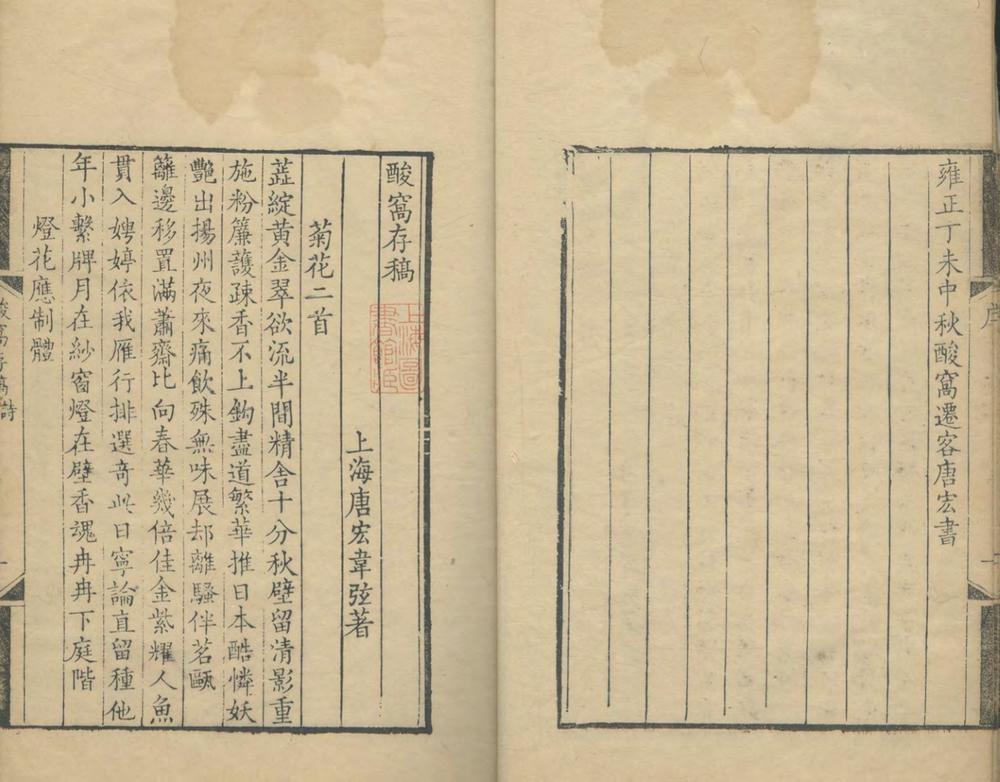 雍正丁未中秋酸窩遷客唐宏書
序
酸窩存稿
上海圖書館藏
上海唐宏韋弦著
菊花二首
蕋綻黃金翠欲流半間精舍十分秋壁留清影重
施粉簾護疎香不上鈎盡道繁華推日本酷憐妖
艷出揚州夜來痛飲殊無味展却離騷伴茗甌
籬邊移置滿蕭齋比向春華幾倍佳金紫耀人魚
貫入娉婷依我雁行排選奇此日寧論直留種他
年小繫牌月在紗窗燈在壁香魂冉冉下庭階
燈花應制體
酸窩存稿 詩
一